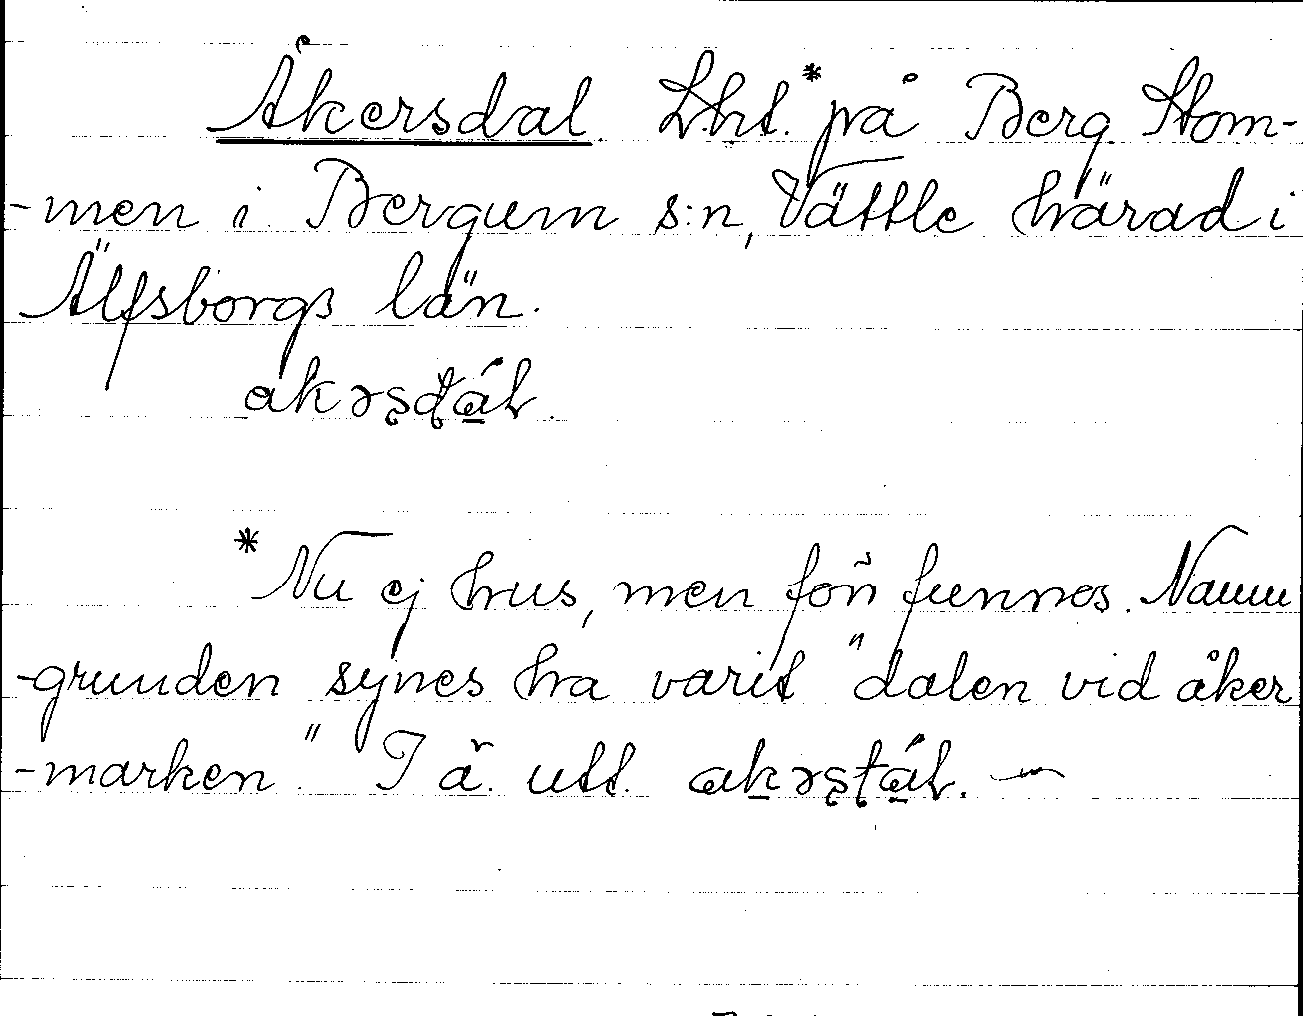 Åkersdal. Lht.* på Berg Stom-
-men i Bergum s:n, Vättle härad i
Älfsborgs län.
akərsdál.
*Nu ej hus, men förr funnos. Namn
-grunden synes ha varit "dalen vid åker
-marken." I ä. utt. akərstál. —